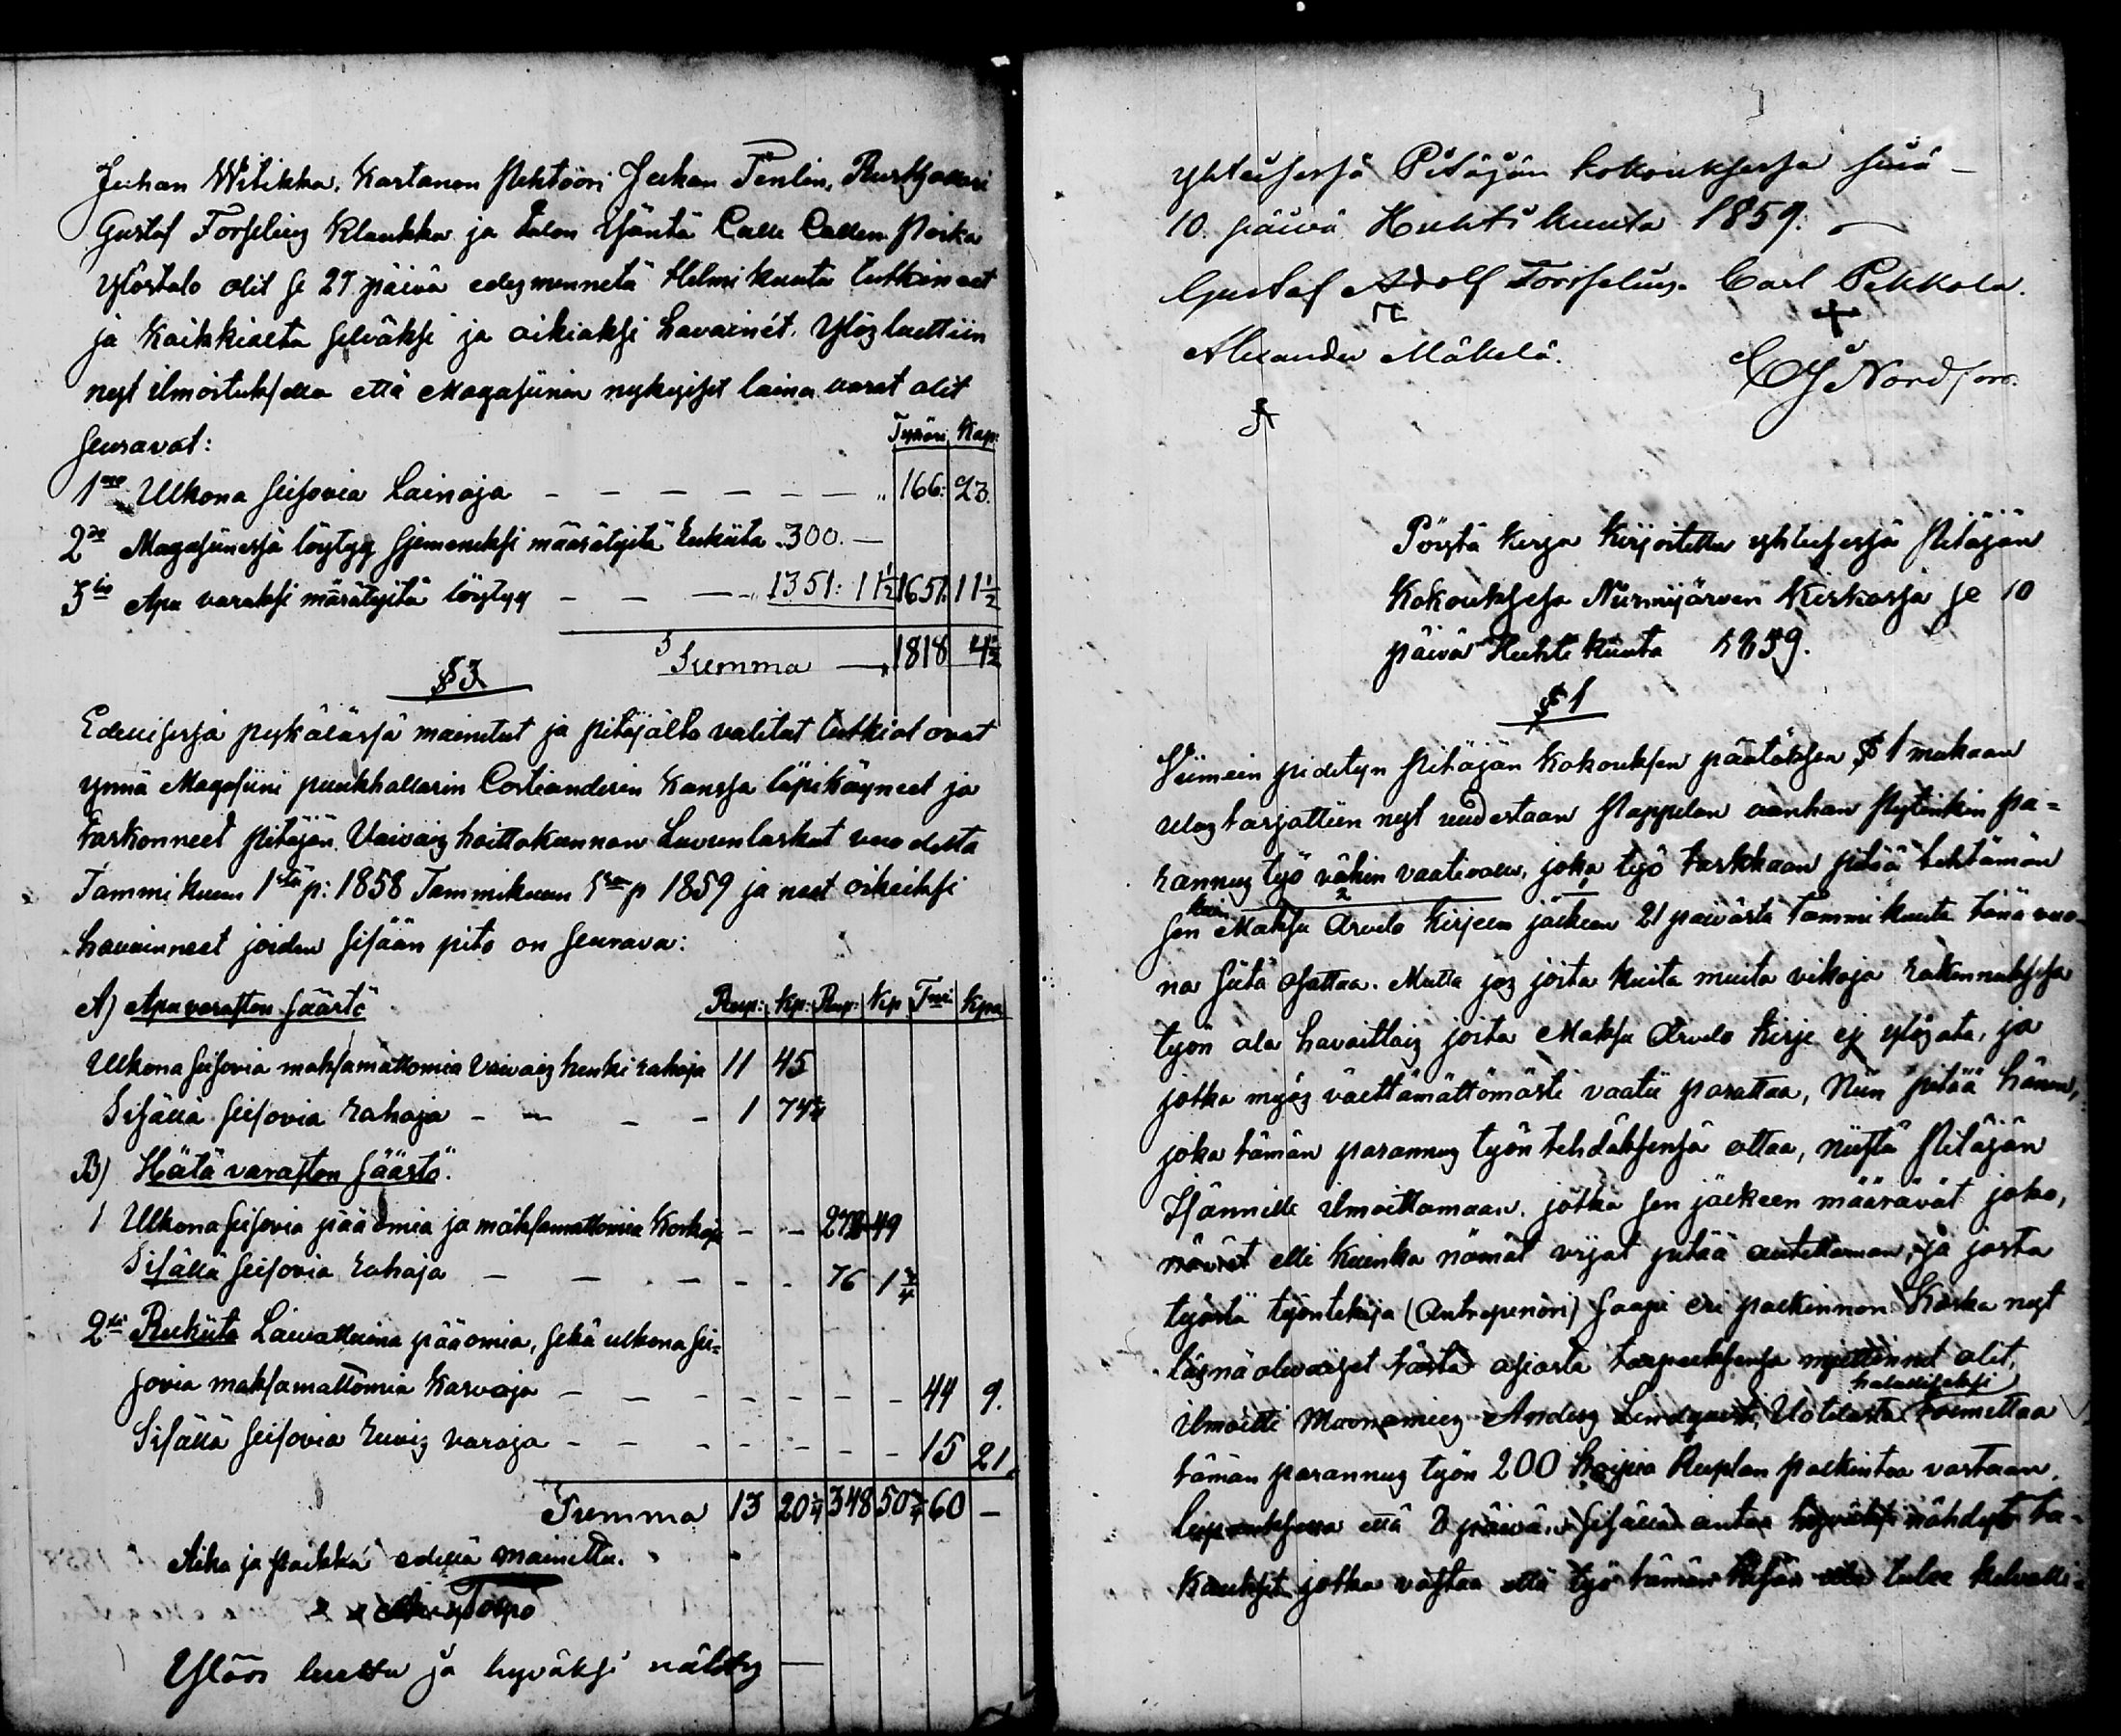 Juhan Witikka, Kartanon Rehtoori Juhan Tenlén, Ruskhollari
Gustaf Forselius Klaukka ja Talon Isäntä Calle Callen Poika
Ylöstalo olit se 27 päivä edesmennetä Helmi kuuta tutkineet
ja kaikkialta selväksi ja oikiaksi havainet. Ylös luettiin
nyt ilmoituksella että Magasiinin nykyiset laina varat olit
seuravat:
Tynöri Kap:
1mo Ulkona seisovia Lainoja — — — — — — „ 166: 23.
2do Magasiinissa löytyy sjemeneksi määrätyitä Rukiita 300. —
3tio Apu varaksi märätyitä löytyy — — — „ 1351: 11½ 1651. 11½
Summa — 1818 4½
§ 3
Edellisessä pykälässä mainitut ja pitäjältä valitut tutkiat ovat
ynnä Magasiini puukhallarin Costianderin kanssa läpikäyneet ja
tarkonneet Pitäjän Vaivais hoittokunnan Luvunlaskut vuodelta
Tammi kuun 1stä p: 1858 Tammikuun 1sen p 1859 ja neet oikeiksi
havainneet joiden sisään pito on seurava:
A) Apu varaston säästö Rup: Kp: Rup: Kp Tnri Kpa
Ulkona seisovia maksamattomia Vaivais henki rahoja 11 45
Sisällä seisovia rahoja — — — — 1 74¾
B) Hätä varaston säästö.
1 Ulkona seisovia pääomia ja maksamattomia Korkoja — — 272 49
Sisällä seisovia rahoja — — — — — 76 1¾
2do Rukiita Lainattuina pääomia, sekä ulkona sei=
sovia maksamattomia kasvoja — — — — — — — 44 9.
Sisällä seisovia ruvis varoja — — — — — — — 15 21.
Summa 13 20¾ 348 50¾ 60 —
Aika ja paikka edellä mainittu.
Ylöös luettu ja hyväksi nähty —
yhteisessä Pitäjän kokouksessa sinä —
10. päivä Huhti kuuta 1859.
Gustaf Adolf Forselius. Carl Pekkola.
Alexander Mäkelä.
Nordfors.
Pöystä kirja kirjoitettu yhteisessä Pitäjän
Kokouksesa Nurmijärven Kirkossa se 10
päivä Huhti kuuta 1859.
§ 1
Viimein pidetyn Pitäjän kokouksen päätöksen § 1 mukaan
ulos tarjottiin nyt uudestaan Pappilan vanhan Pytinkin pa=
rannus työ vähin vaativalle, joka työ tarkkaan pitää tehtämän
kuin 2
sen Maksu Arvelo Kirjeen jälkeen 21 päivästä Tammi kuuta tänä vuo
na siitä osottaa. Mutta jos joita kuita muita vikoja rakennuksesa
työn ala havaittais joita Maksu Arvelo kirje ej ylösota, ja
jotka myös välttämättömästi vaatii parattaa, Niin pitää hänen,
joka tämän parannus työn tehdäksensä ottaa, niistä Pitäjän
Isännille ilmoittamaan, jotka sen jälkeen määrävät joko,
elli kuinka nämät vijat pitää autettaman, ja josta
työstä työntekijä (Antrepenöri) saapi eri palkinnon. Koska nyt
läsnä olevaiset tästä asiasta tarpeeksensa miettinnet olit,
halullisesti
ilmoitti Maanamies Anders Lindqvist, Uotilasta toimittaa
tämän parannus työn 200 hopia Ruplan palkintoa vastaan,
Lupauksella että 8 päivän sisällä antaa hyväksi nähdyt ta-
kaukset, jotka vastaa että työ tämän kesän alla tulee kelvalli=